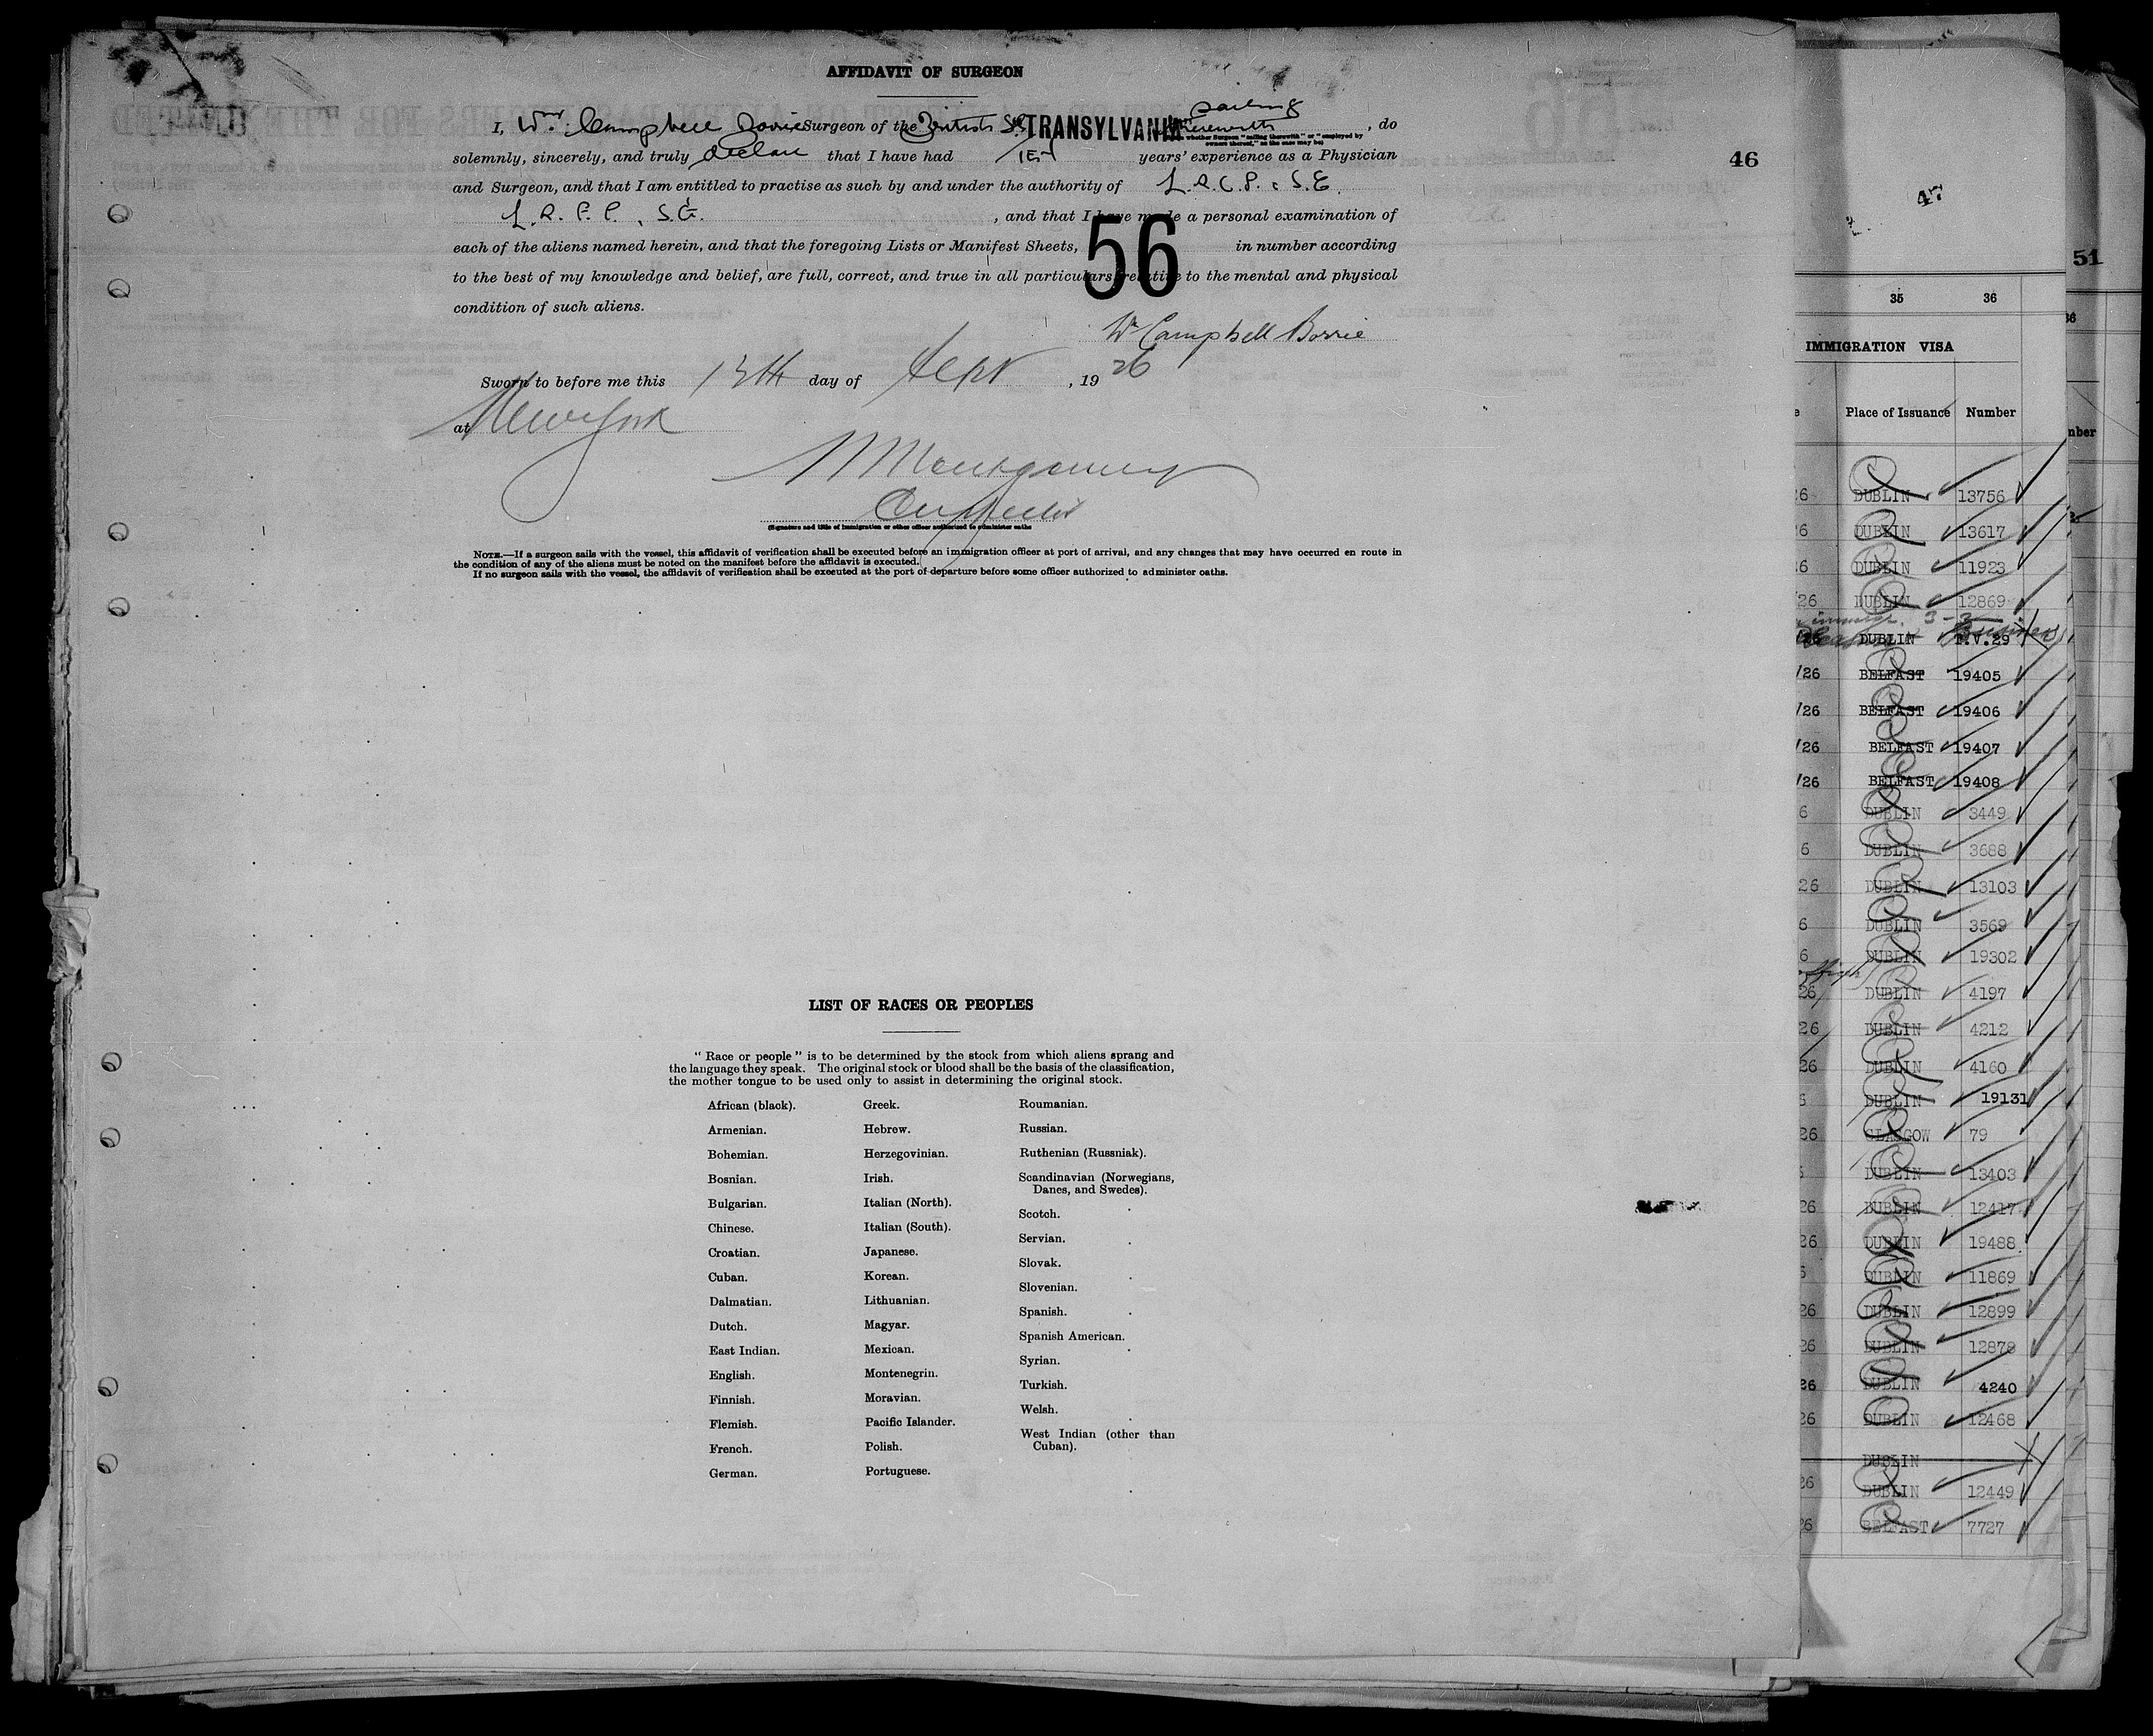 AFFIDAVIT OF SURGEON
sailing
I, Wm. Campbell Borrie Surgeon of the British SS TRANSYLVANIA therewith, do
solemnly, sincerely, and truly declare that I have had years' experience as a Physician
and Surgeon, and that I am entitled to practise as such by and under the authority of L.R.C.P. & S.E.
L.R.F.P. S.G. , and that I have made a personal examination of
each of the aliens named herein, and that the foregoing Lists or Manifest Sheets, 56 in number according
to the best of my knowledge and belief, are full, correct, and true in all particulars relative to the mental and physical
condition of such aliens.
Wm Campbell Borrie
Sworn to before me this 13th day of Sept , 1926
at New York
Montgomery
Inspector
(Signature and title of immigration or other officer authorized to administer oaths
NOTE.—If a surgeon sails with the vessel, this affidavit of verification shall be executed before an immigration officer at port of arrival, and any changes that may have occurred en route in
the condition of any of the aliens must be noted on the manifest before the affidavit is executed.
If no surgeon sails with the vessel, the affidavit of verification shall be executed at the port of departure before some officer authorized to administer oaths.
LIST OF RACES OR PEOPLES
" Race or people " is to be determined by the stock from which aliens sprang and
the language they speak. The original stock or blood shall be the basis of the classification,
the mother tongue to be used only to assist in determining the original stock.
African (black).
Armenian.
Bohemian.
Bosnian.
Bulgarian.
Chinese.
Croatian.
Cuban.
Dalmatian.
Dutch.
East Indian.
English.
Finnish.
Flemish.
French.
German.
Greek.
Hebrew.
Herzegovinian.
Irish.
Italian (North).
Italian (South).
Japanese.
Korean.
Lithuanian.
Magyar.
Mexican.
Montenegrin.
Moravian.
Pacific Islander.
Polish.
Portuguese.
Roumanian.
Russian.
Ruthenian (Russniak).
Scandinavian (Norwegians,
Danes, and Swedes).
Scotch.
Servian.
Slovak.
Slovenian.
Spanish.
Spanish American.
Syrian.
Turkish.
Welsh.
West Indian (other than
Cuban).
46
47
51
35 36
IMMIGRATION VISA
Place of Issuance Number
26 DUBLIN 13756
6 DUBLIN 13617
6 DUBLIN 11923
26 DUBLIN 12869
3-3
26 DUBLIN T.V.29
/26 BELFAST 19405
/26 BELFAST 19406
/26 BELFAST 19407
/26 BELFAST 19408
6 DUBLIN 3449
6 DUBLIN 3688
26 DUBLIN 13103
6 DUBLIN 3569
6 DUBLIN 19302
26 DUBLIN 4197
26 DUBLIN 4212
26 DUBLIN 4160
DUBLIN 19131
26 GLASGOW 79
DUBLIN 13403
26 DUBLIN 12417
26 DUBLIN 19488
DUBLIN 11869
26 DUBLIN 12899
26 DUBLIN 12878
26 DUBLIN 4240
26 DUBLIN 12468
DUBLIN
26 DUBLIN 12449
26 BELFAST 7727